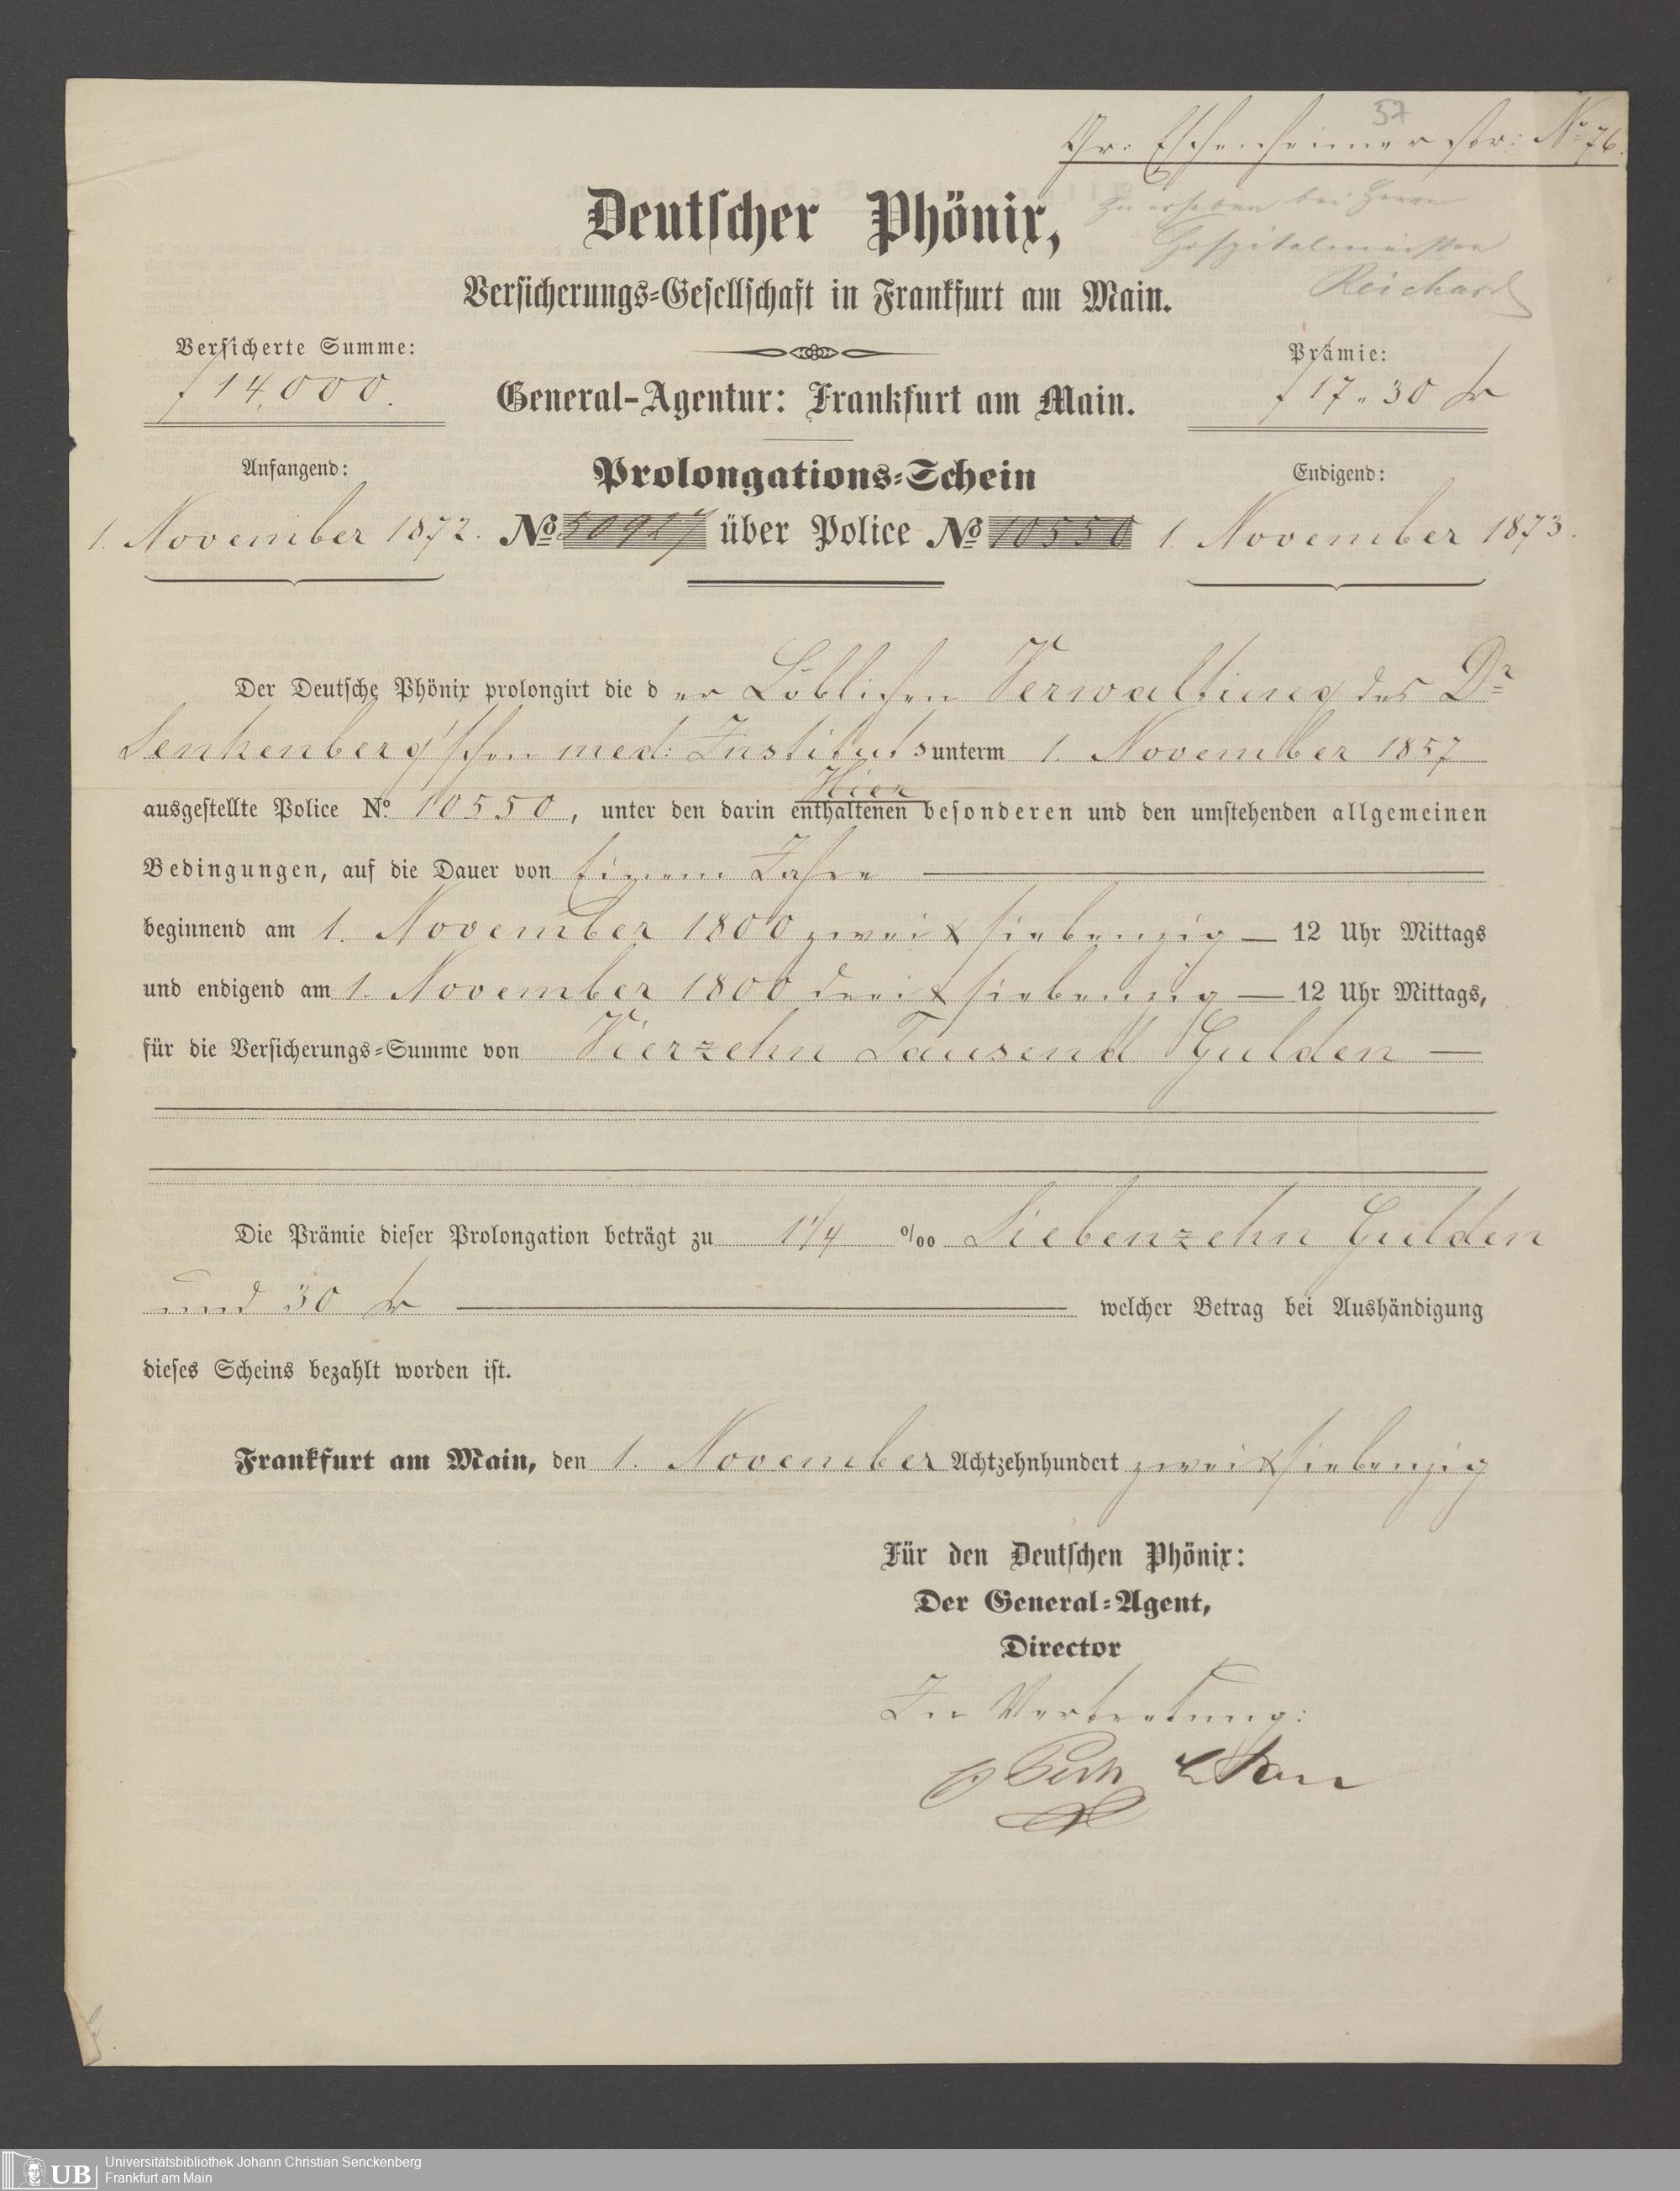 57
Gr: Eschenheimer str: No 76.
zu erheben bei Herrn
Hospitalmeister
Reichard
Deutscher Phönix,
Versicherungs=Gesellschaft in Frankfurt am Main.
Versicherte Summe:
f 14,000.
Prämie:
f 17 „ 30 kr
General-Agentur: Frankfurt am Main.
Anfangend:
Prolongations=Schein
Endigend:
1. November 1872. No 50927 über Police No 10550 1. November 1873.
Der Deutsche Phönix prolongirt die d er Löblichen Verwaltung des Dr
Senkenberg'schen med: Instituts unterm 1. November 1857
Hier
ausgestellte Police No. 10550, unter den darin enthaltenen besonderen und den umstehenden allgemeinen
Bedingungen, auf die Dauer von Einem Jahre
beginnend am 1. November 1800 zwei & siebenzig — 12 Uhr Mittags
und endigend am 1. November 1800 drei & siebenzig — 12 Uhr Mittags,
für die Versicherungs=Summe von Vierzehn Tausend Gulden —
Die Prämie dieser Prolongation beträgt zu 1 1/4 %00 Siebenzehn Gulden
und 30 kr — welcher Betrag bei Aushändigung
dieses Scheins bezahlt worden ist.
Frankfurt am Main, den 1. November Achtzehnhundert zwei & siebenzig
Für den Deutschen Phönix:
Der General=Agent,
Director
In Vertretung:
UB Universitätsbibliothek Johann Christian Senckenberg
Frankfurt am Main